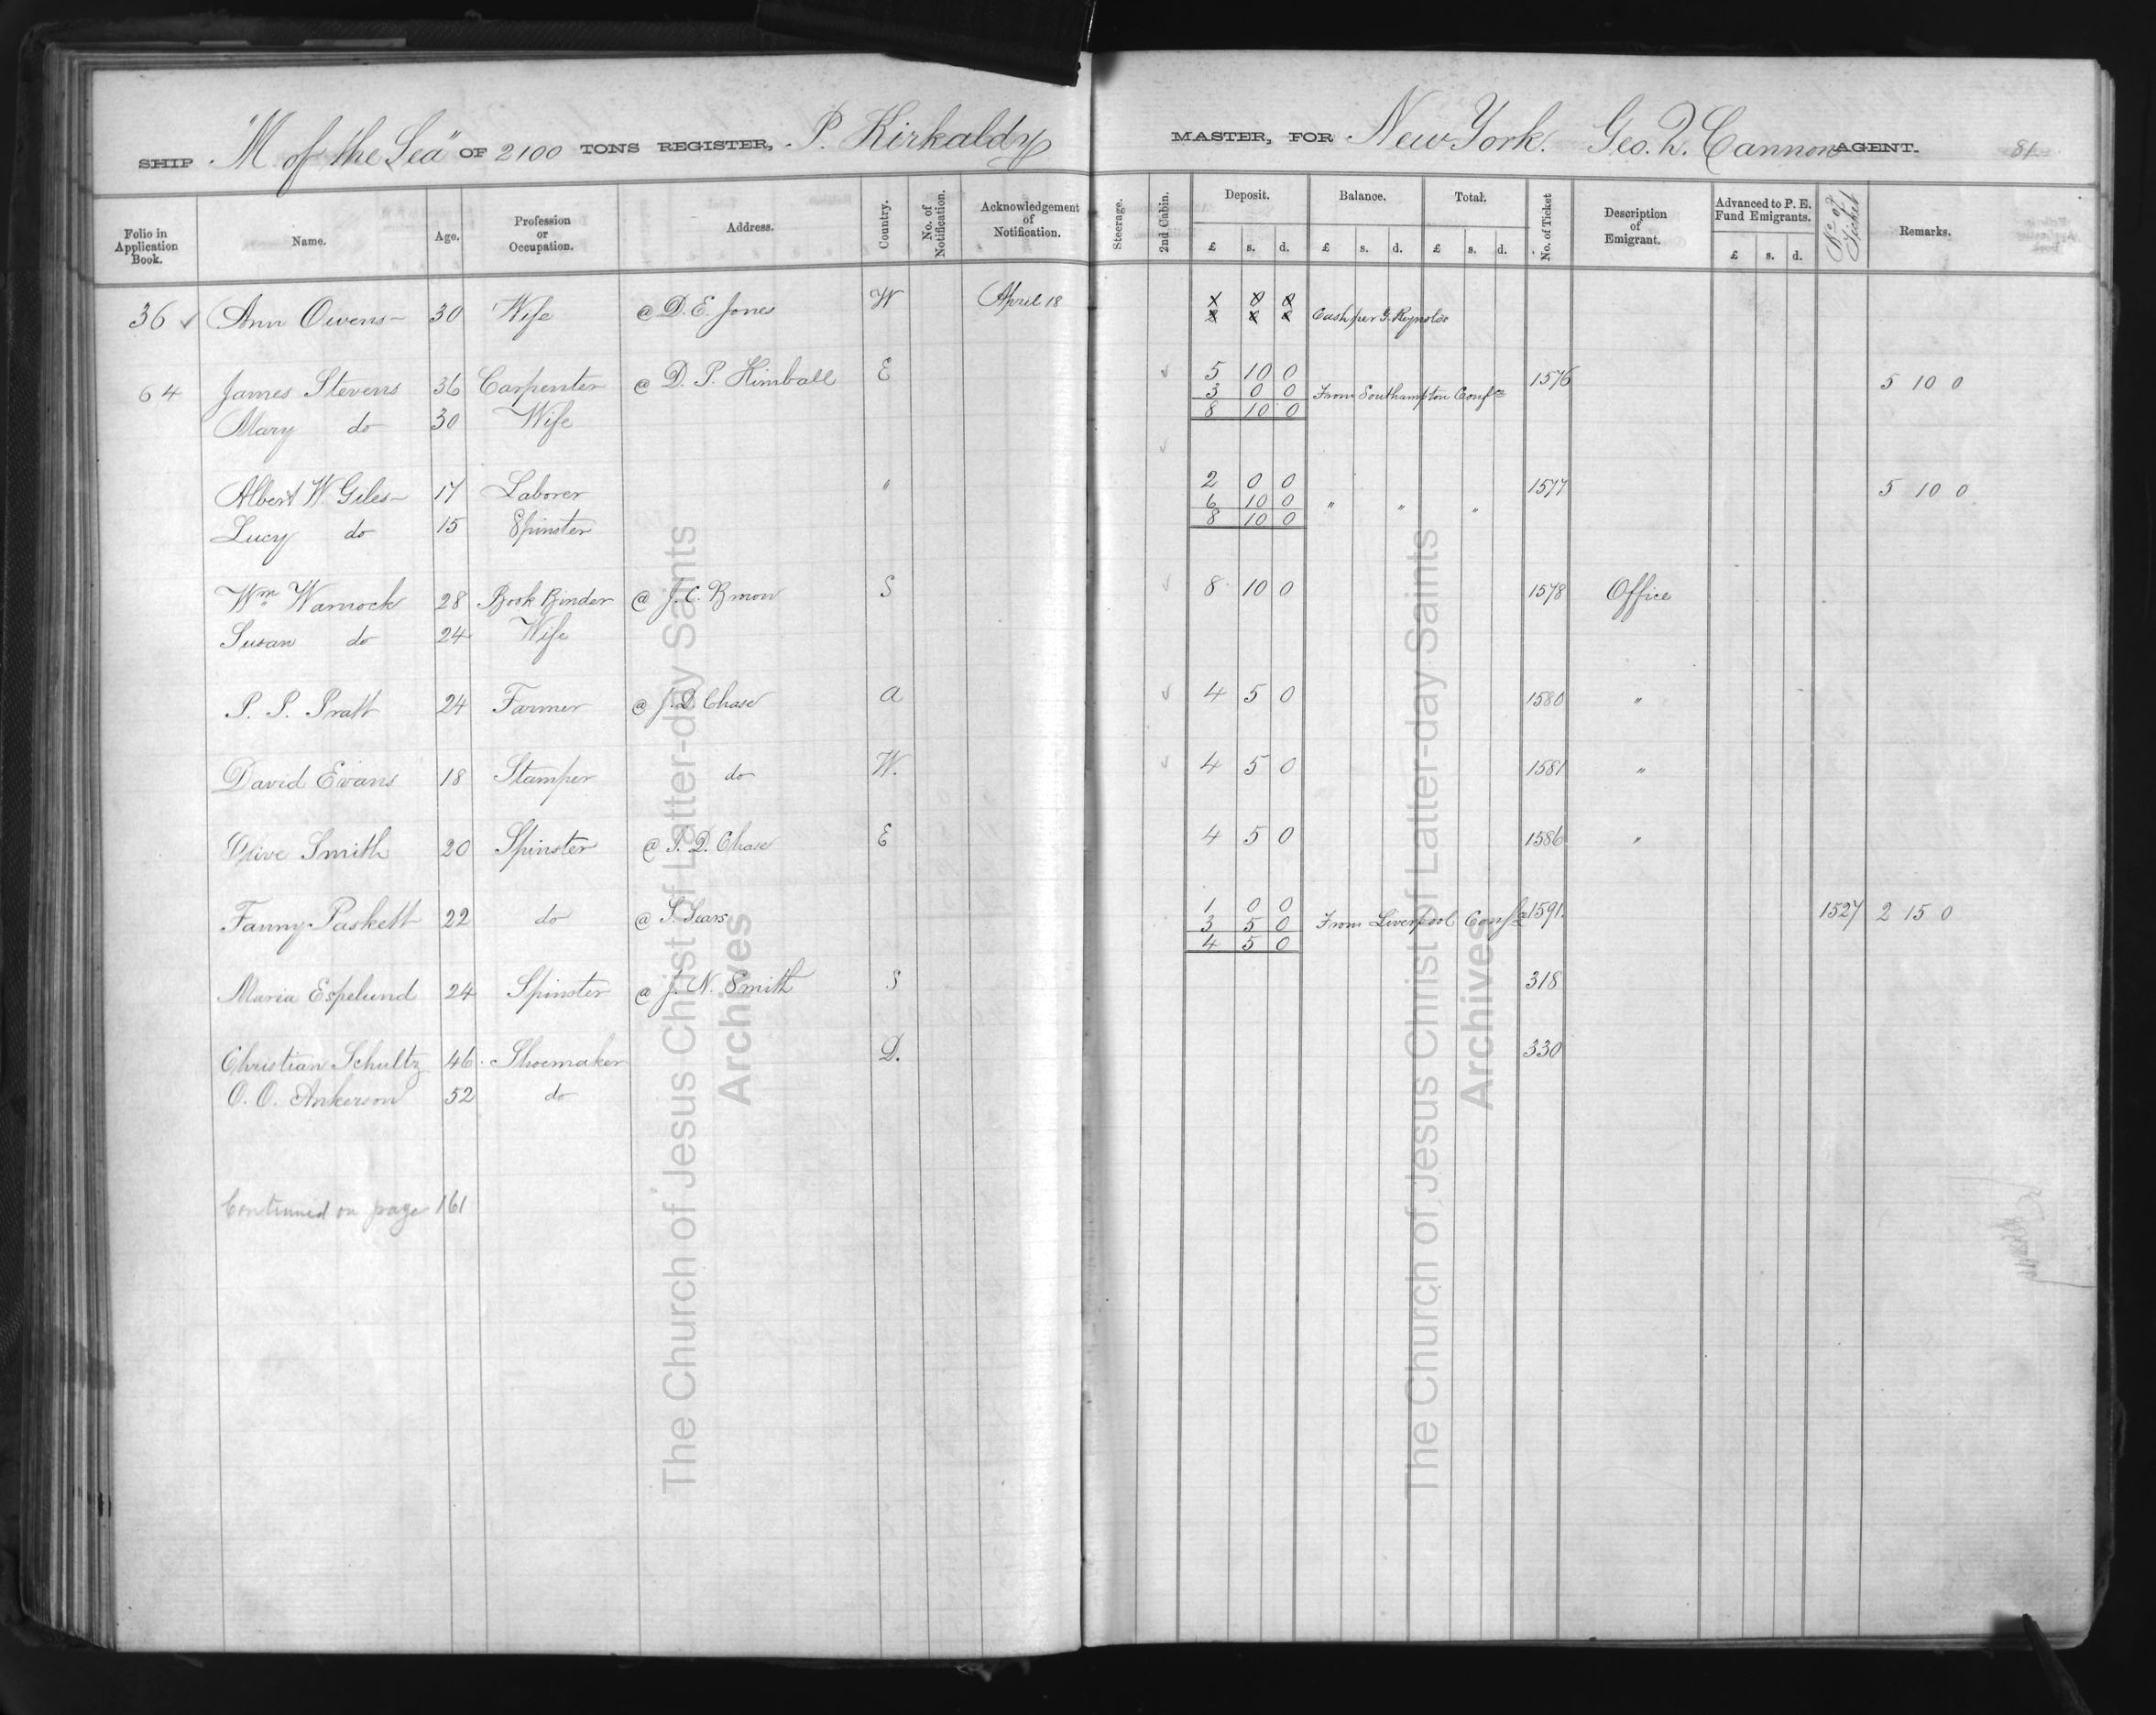 SHIP "M of the Sea" OF 2100 TONS REGISTER, P. Kirkaldy MASTER, FOR New York. Geo. Q. Cannon AGENT. 81
Folio in Application Book. Name. Age. Profession or Occupation. Address. Country. No. of Notification. Acknowledgement of Notification. Steerage. 2nd Cabin. Deposit. £ s. d. Balance. £ s. d. Total. £ s. d. No. of Ticket Description of Emigrant. Advanced to P. E. Fund Emigrants. £ s. d. No of Ticket Remarks.
36 ✓ Ann Owens 30 Wife @ D. E. Jones W April 18 Cash per G. Reynolds
64 James Stevens 36 Carpenter @ D. P. Kimball E ✓ 5 10 0 1576 5 10 0
3 0 0 From Southampton Confce
Mary do 30 Wife 8 10 0
✓
Albert W. Giles 17 Laborer " 2 0 0 1577 5 10 0
6 10 0 " " "
Lucy do 15 Spinster 8 10 0
Wm Warnock 28 Book Binder @ J. C. Brown S ✓ 8 10 0 1578 Office
Susan do 24 Wife
P. P. Pratt 24 Farmer @ J. D. Chase A ✓ 4 5 0 1580 "
David Evans 18 Stamper do W. ✓ 4 5 0 1581 "
Olive Smith 20 Spinster @ S. D. Chase E 4 5 0 1586 "
Fanny Paskett 22 do @ S. Sears 1 0 0 1591 1527 2 15 0
3 5 0 From Liverpool Confce
4 5 0
Maria Espelund 24 Spinster @ J. N. Smith S 318
Christian Schultz 46 Shoemaker D. 330
O. O. Ankerson 52 do
Continued on page 161
The Church of Jesus Christ of Latter-day Saints
Archives
The Church of Jesus Christ of Latter-day Saints
Archives